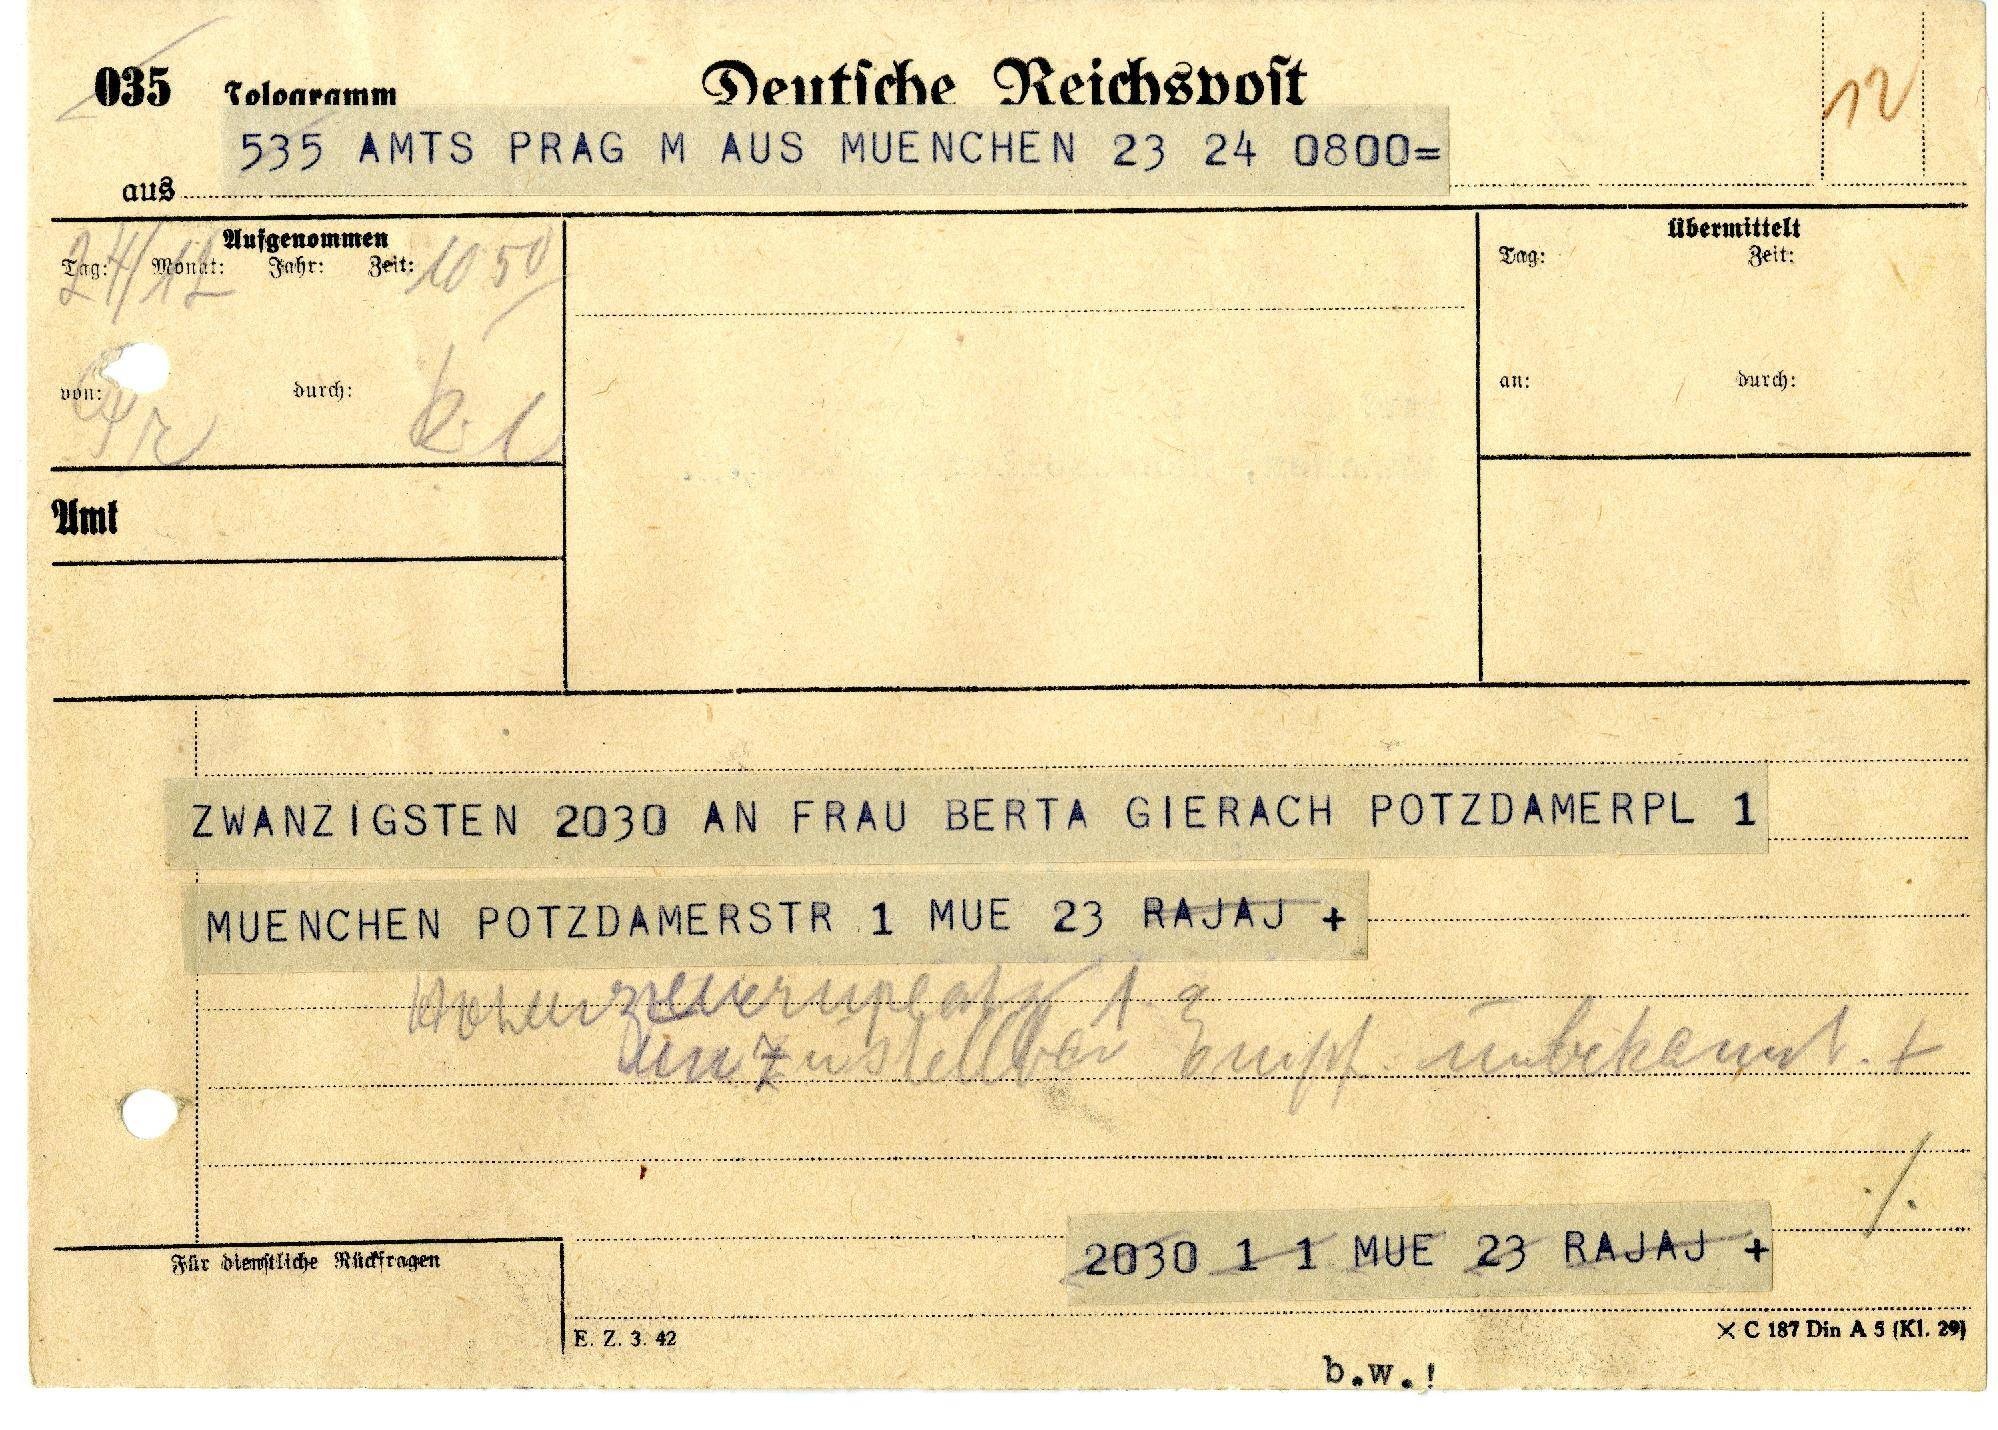 035 Telegramm Deutsche Reichspost
12
535 AMTS PRAG M AUS MUENCHEN 23 24 0800=
aus
Aufgenommen
Tag: Monat: Jahr: Zeit:
24/12 1050
von: durch:
Übermittelt
Tag: Zeit:
an: durch:
Amt
ZWANZIGSTEN 2030 AN FRAU BERTA GIERACH POTZDAMERPL 1
MUENCHEN POTZDAMERSTR 1 MUE 23 RAJAJ +
1 a
unzustellbar Empf. unbekannt. +
./.
2030 1 1 MUE 23 RAJAJ +
Für dienstliche Rückfragen
E. Z. 3. 42
C 187 Din A 5 (Kl. 29)
b.w.!